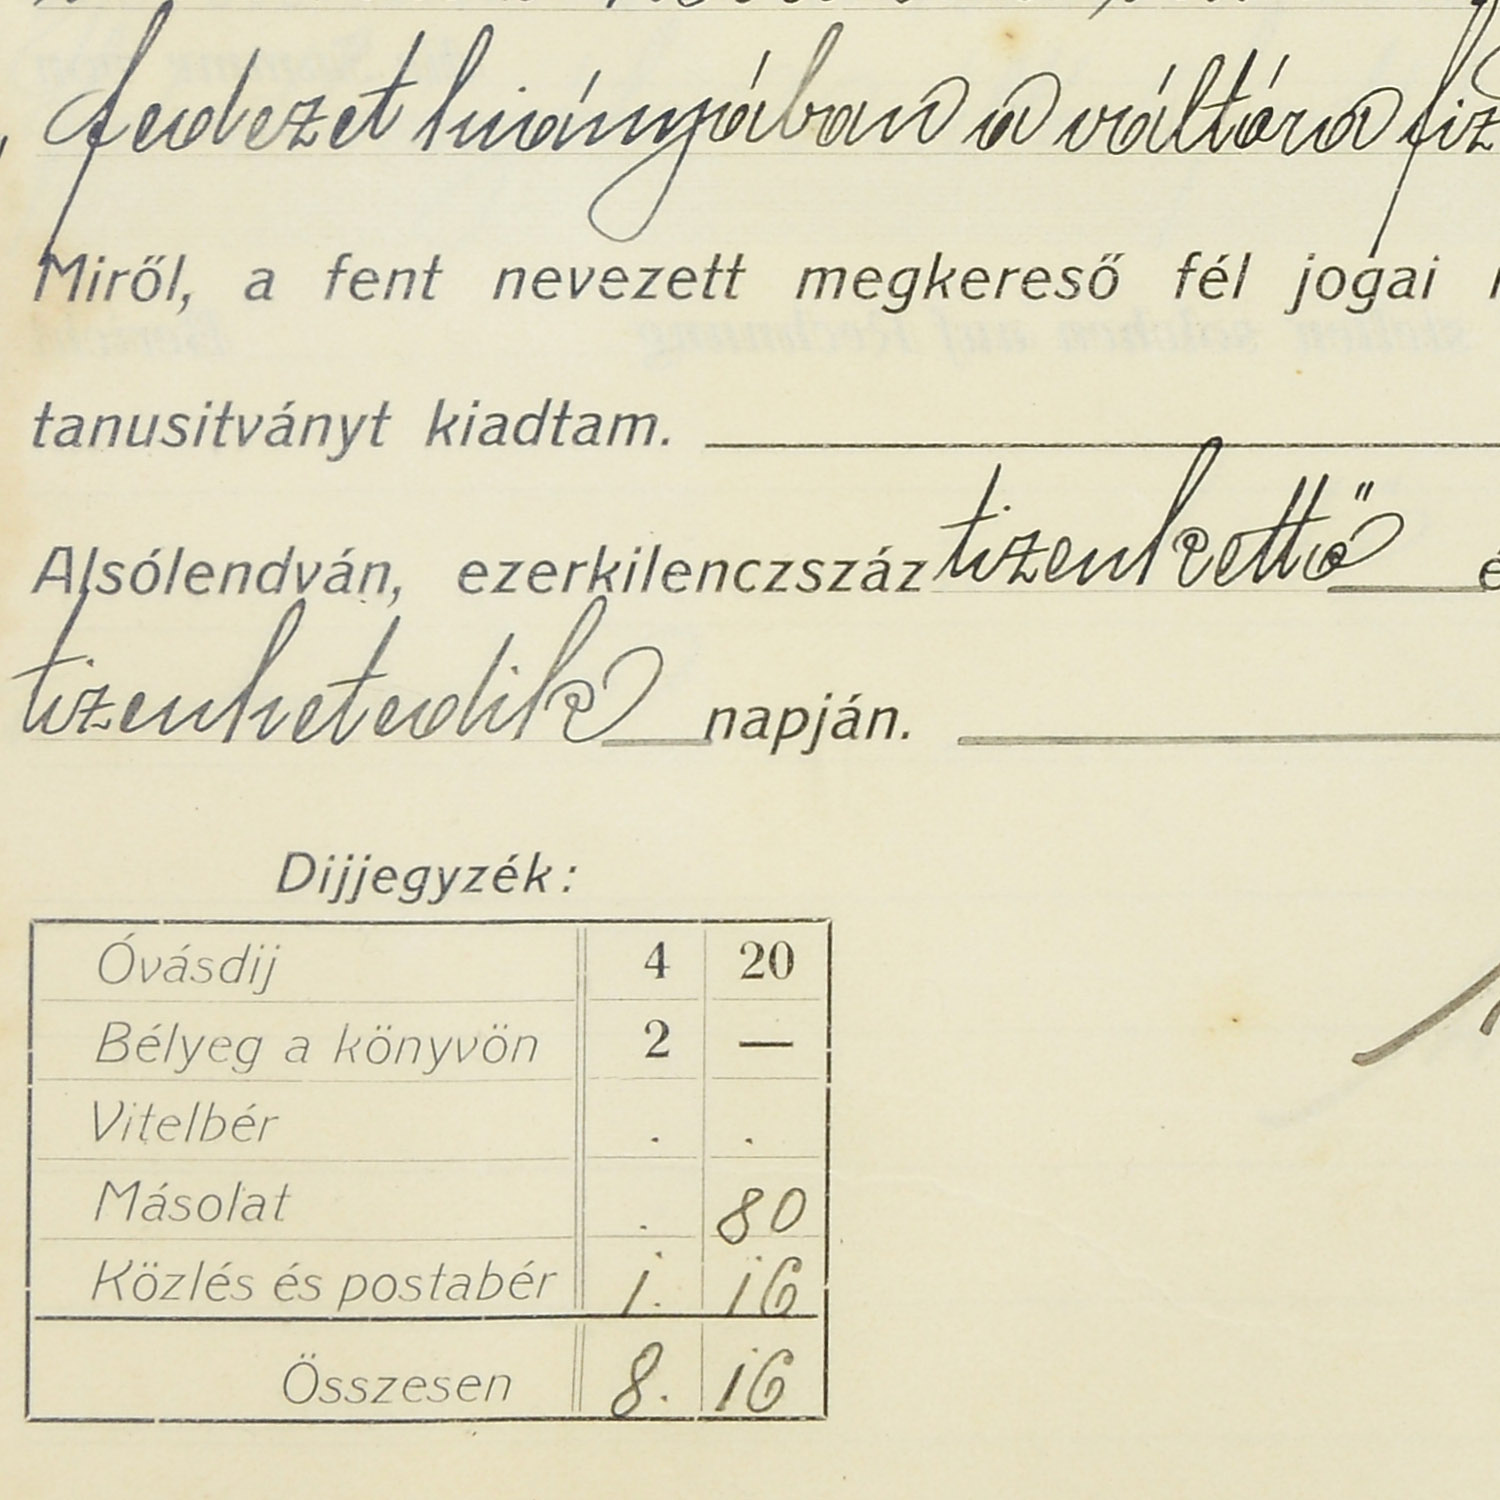 fedezet hiányában a váltóra fiz
Miről, a fent nevezett megkereső fél jogai
tanusitványt kiadtam.
Alsólendván, ezerkilenczszáz tizenkettő é
tizenhetedik napján.
Dijjegyzék:
Óvásdij 4 20
Bélyeg a könyvön 2 —
Vitelbér . .
Másolat . 80
Közlés és postabér 1. 16
Összesen 8. 16